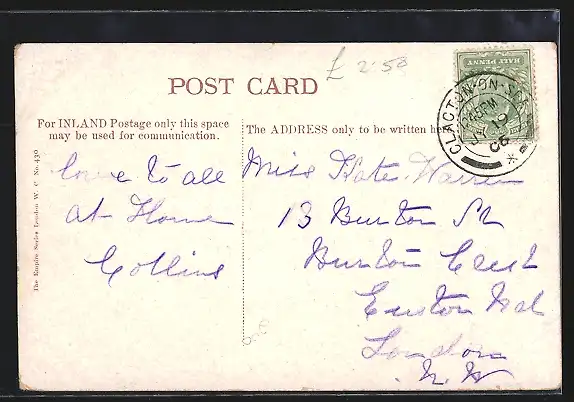 £ 2.50
POST CARD
For INLAND Postage only this space
may be used for communication.
The ADDRESS only to be written
HALF PENNY
CLACTON-ON-SEA
Love to all
at Home
Collins
Miss Kate Warren
13 Burton St
Burton Crest
Euston Rd
London
N. W
The Empire Series London W. C. No. 430